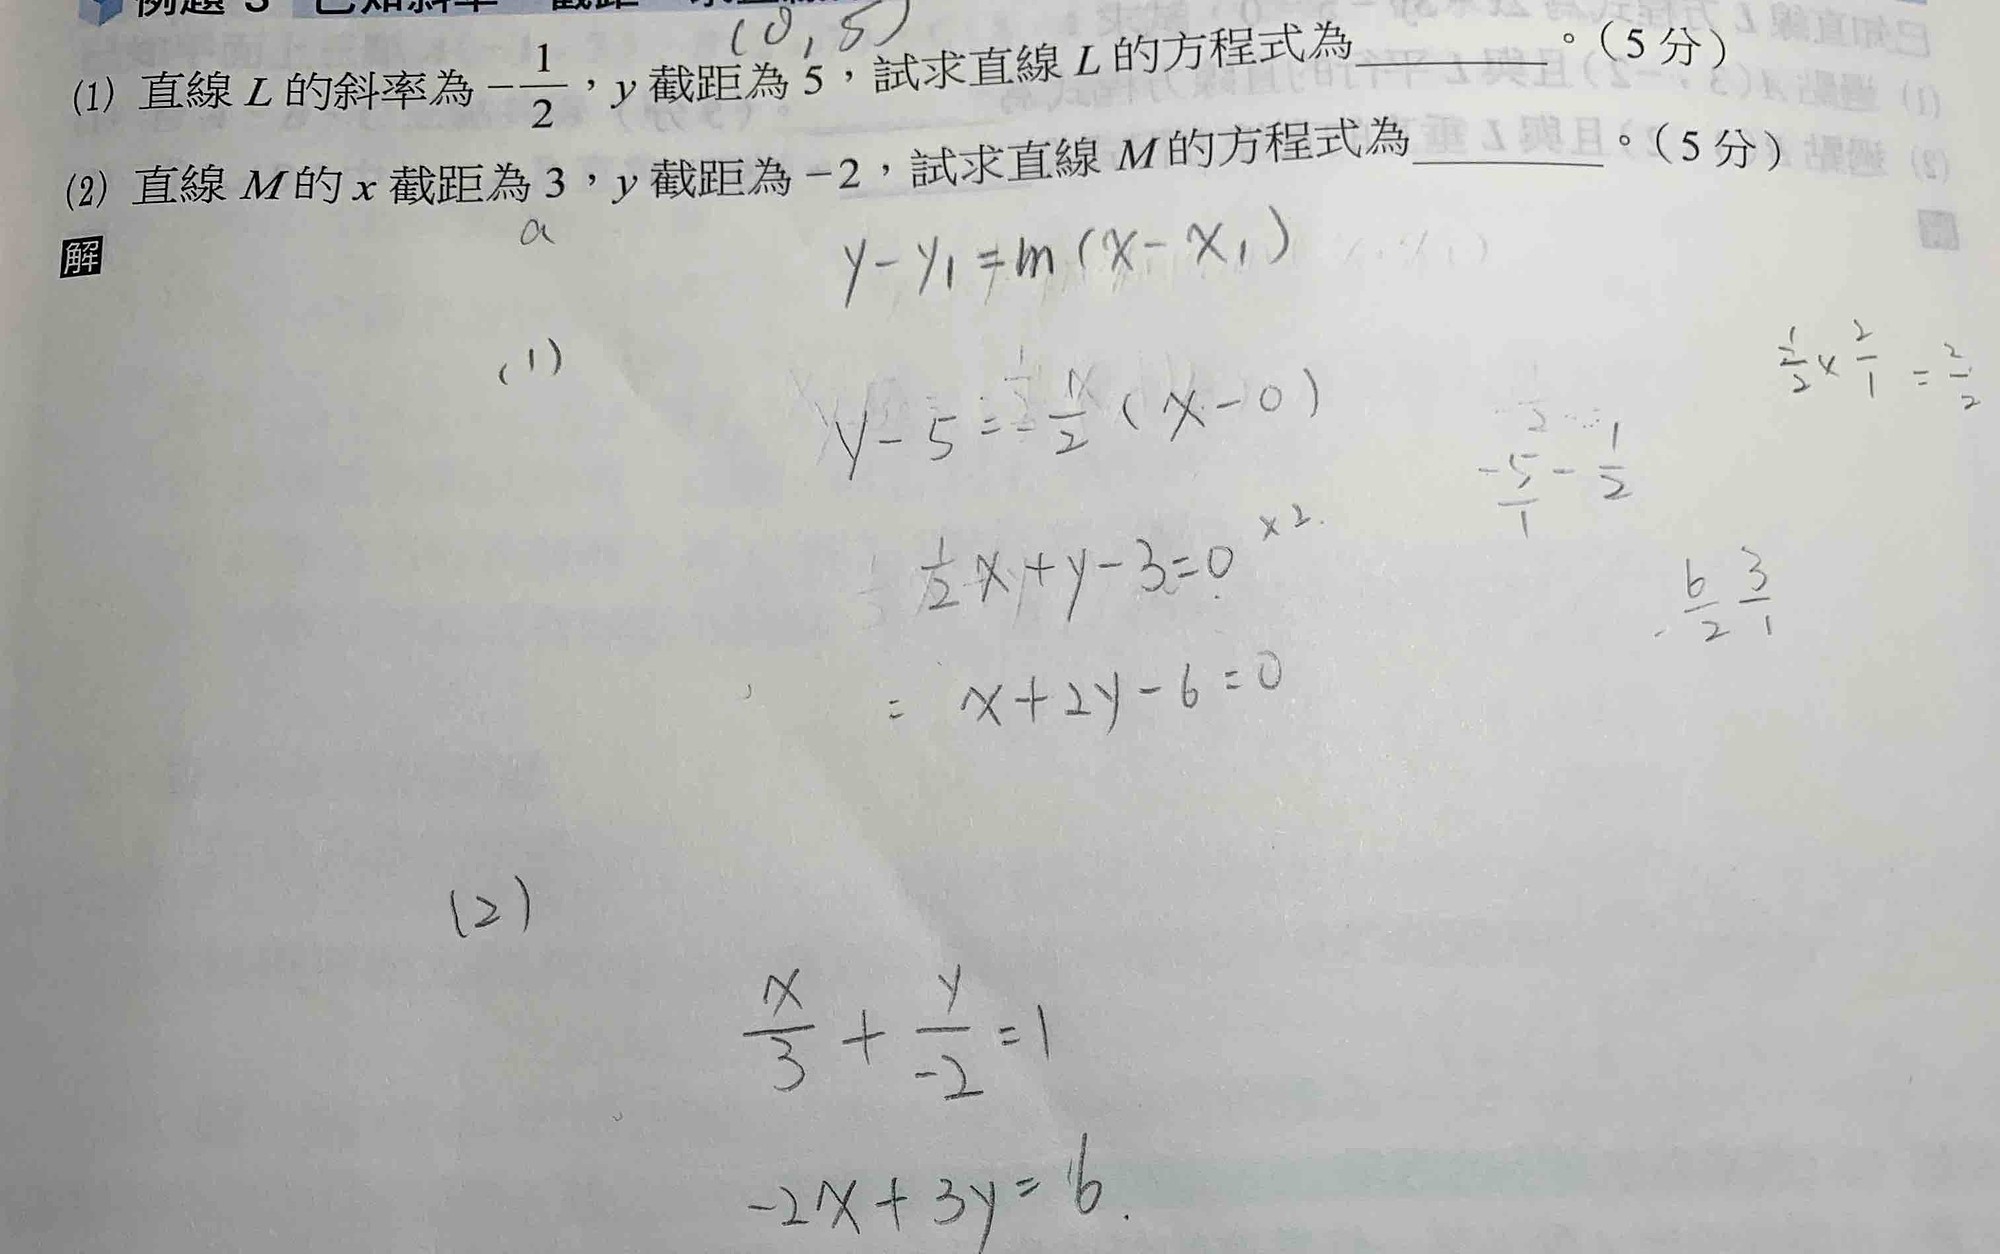 例題 3
(0, 5)
(1) 直線 L 的斜率為 -1/2，y 截距為 5，試求直線 L 的方程式為________。（5 分）
(2) 直線 M 的 x 截距為 3，y 截距為 -2，試求直線 M 的方程式為________。（5 分）
a
解
y - y₁ = m (x - x₁)
(1)
y - 5 = - x/2 (x - 0)
1/2 x + y - 3 = 0 ×2.
= x + 2y - 6 = 0
1/2 × 2/1 = 2/2
-5/1 - 1/2
6/2 3/1
(2)
x/3 + y/-2 = 1
-2x + 3y = 6.